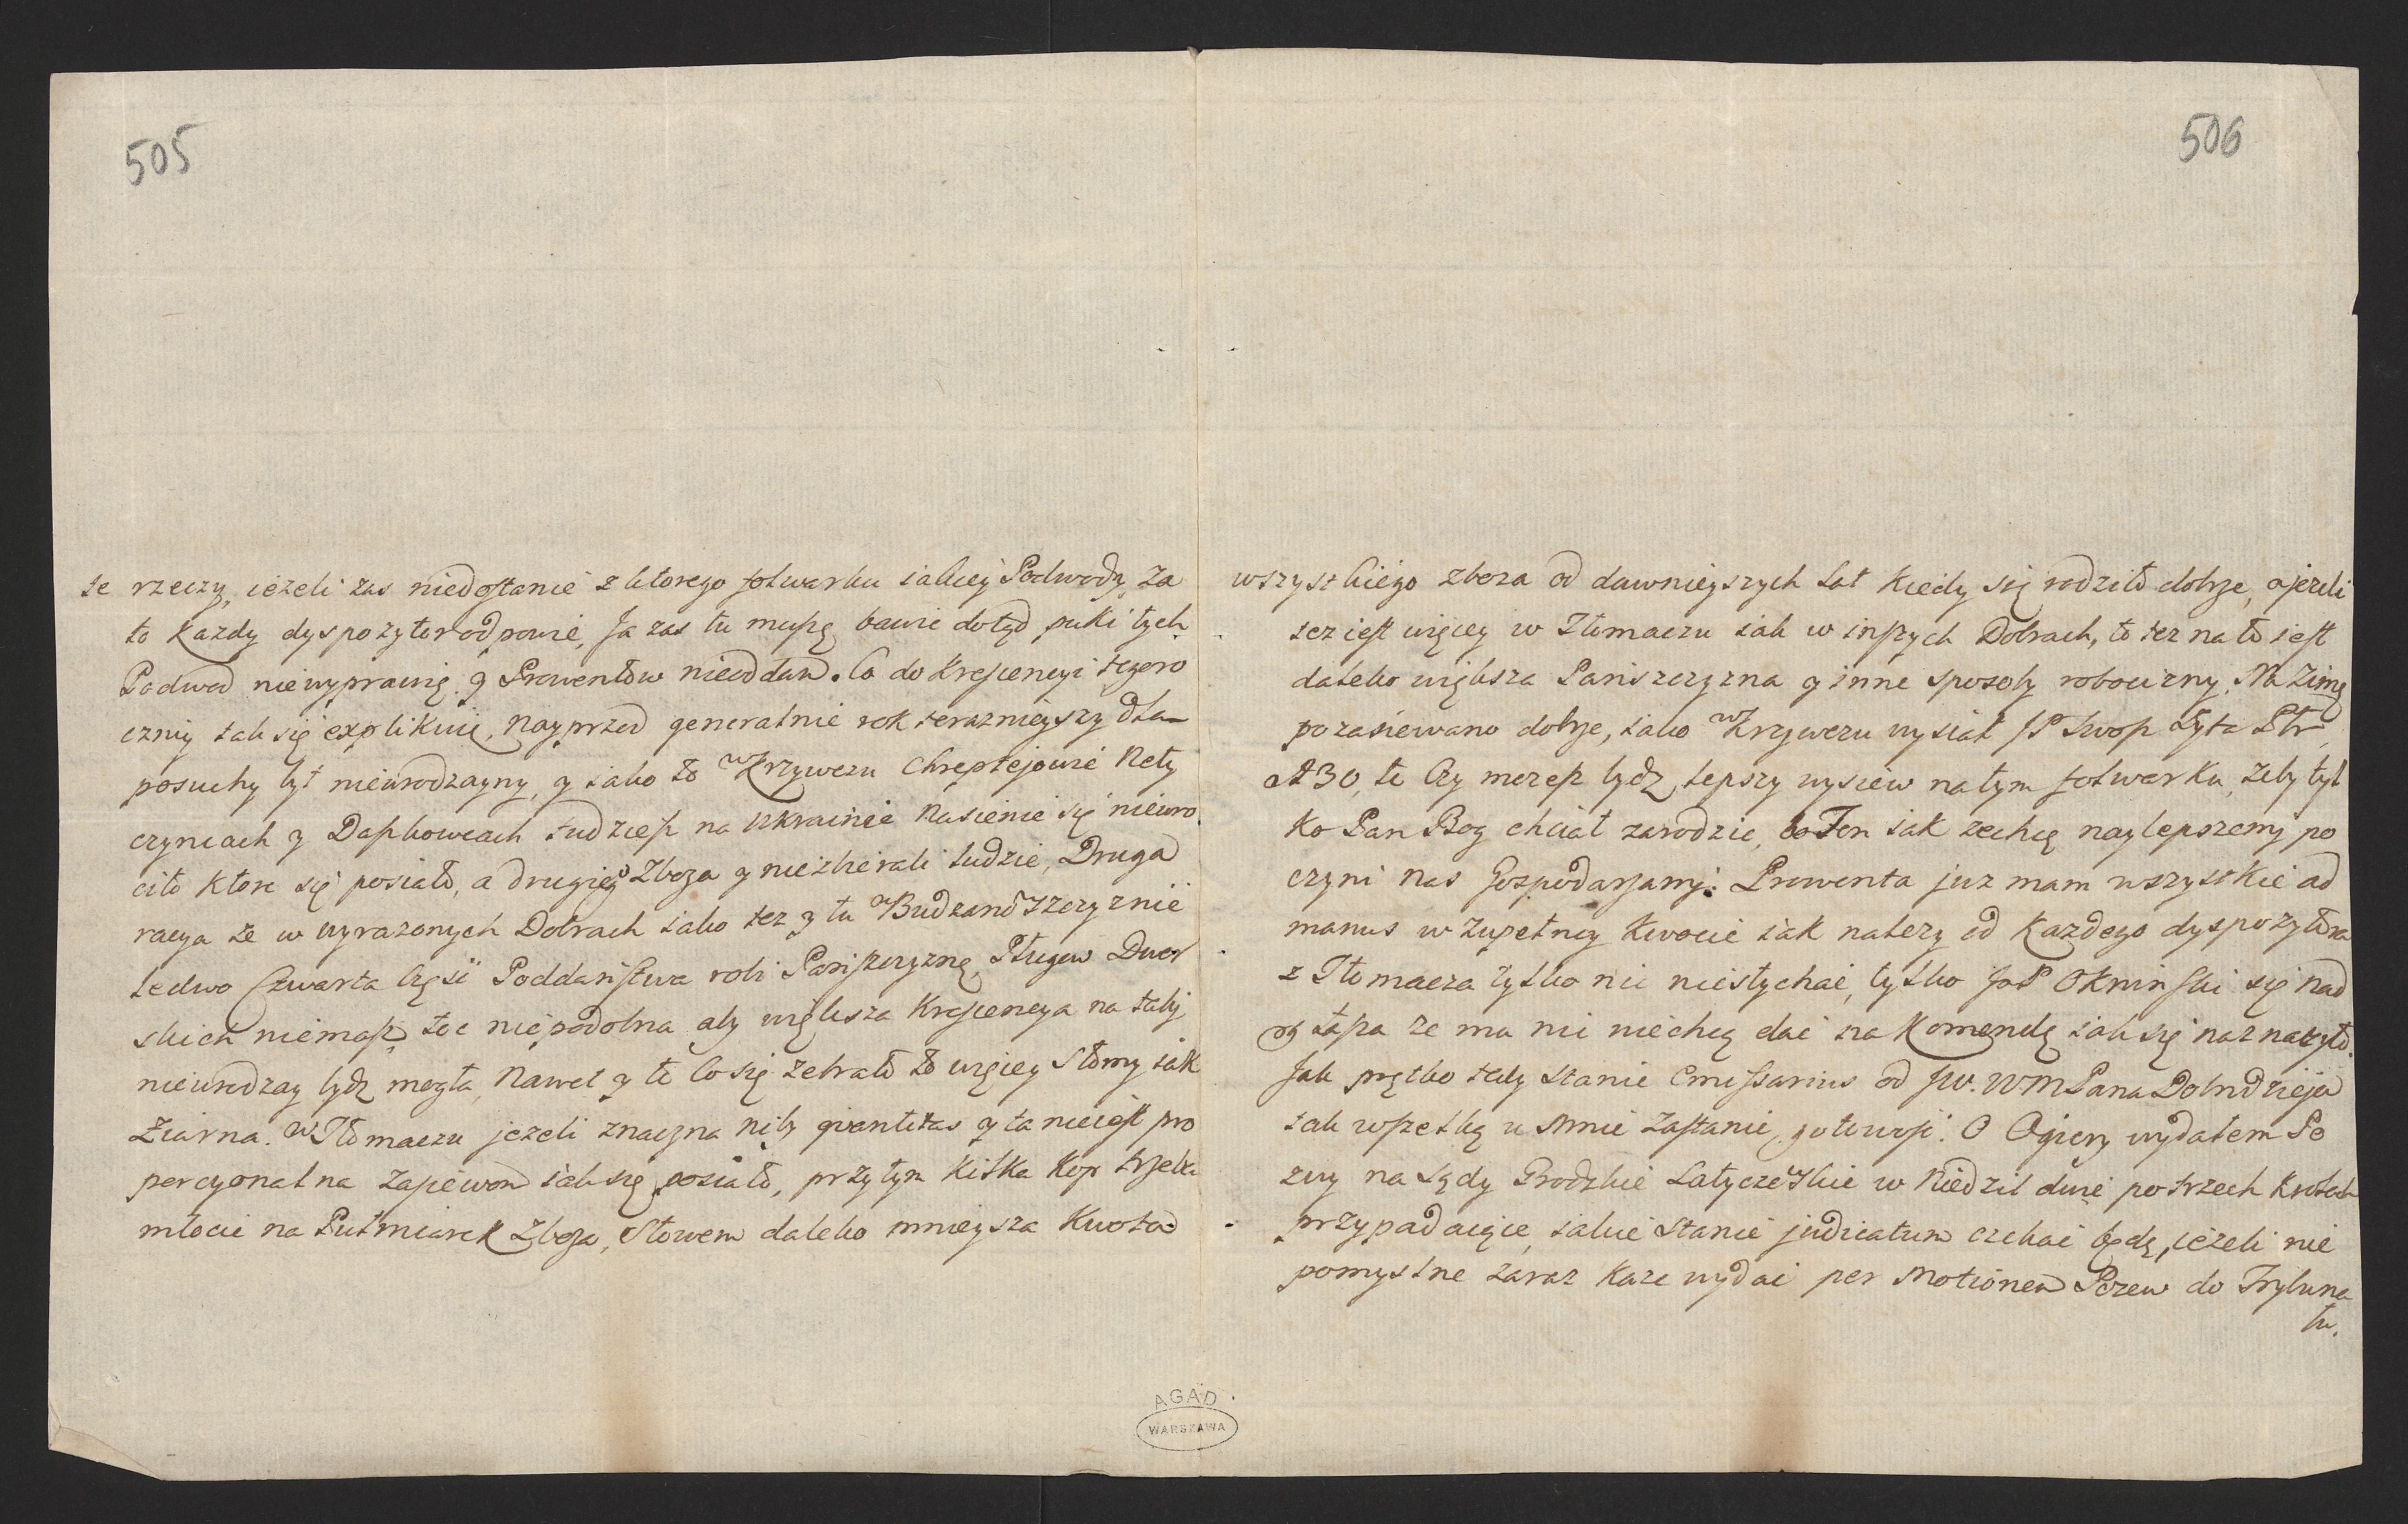 505
te rzeczy, ieżeli zas niedostanie z ktorego folwarku iakiey Podwody, za
to Kazdy dyspozytor odpowie, Ja zas tu muszę bawic dotąd, puki tych
Podwod niewyprawię y Prowentow nieoddam. Co do Krescencyi tegoro
czniy tak się explikuię, Nayprzod generalnie rok terazniey szy dla
posuchy był nieurodzayny, y iako to w Krzywczu Chreptejowie Nety
czyncach y Daszkowcach tudziesz na Ukrainie Nasienie się niewro
ciło Ktore się posiało, a drugiego Zboza y niezbierali ludzie, Druga
racya że w wyrazonych Dobrach iako tez y tu w Budzanowszczyznie
ledwo Czwarta Częsc Poddanstwa robi Panszczyznę, Pługow Dwor
skich niemasz, toc niepodobna aby większa Krescencya na taky
nieurodzay bydz mogła, Nawet y te co się zebrało to więcey Słomy iak
Ziarna. w Tłomaczu jezeli znaczna niby qvantitas y ta nieiest pro
porcyonalna Zasiewom iak się posiało, przytym Kilka Kop trzeba
młocic na Pułmiarek Zboza, Słowem daleko mnieysza Kwota
506
wszystkiego zboza od dawnieyszych Lat Kiedy się rodziło dobrze, ajezeli
tez iest więcey w Tłomaczu iak w inszych Dobrach, to tez na to iest
daleko większa Panszczyzna y inne sposoby robocizny. Na Zimę
pozasiewano dobrze, iako w Krzywczu wysiał JP Zyta
A 30, te Czy mozesz bydz lepszy wysiew na tym folwarku, Zeby tyl
Ko Pan Bog chciał zarodzic, bo Ten iak zechce naylepszemy po
czyni nas Gospodarzamy. Prowenta juz mam wszystkie ad
manus w Zupełney Kwocie iak nalezy od Kazdego dyspozytora
z Tłomacza tylko nic niesłychac, tylko JoP Okninski się nad
sąsza ze mu nic niechcą dac na Komendę iak się naznaczyło.
Jak prętko tedy stanie Emissarius od JW. WM Pana Dobrodzieja
tak wszelką u Mnie Zastanie gotowosc. O Ogiery wydałem Po
zwy na Sądy Grodzkie Latyczewskie w Niedzil dwie po trzech Krolach
przypadaiące, iakie stanie judicatum czekac będę, ieżeli nie
pomyslne zaraz Każe wydac per Motionem Pozew do Trybuna
łu.
AGAD
WARSZAWA